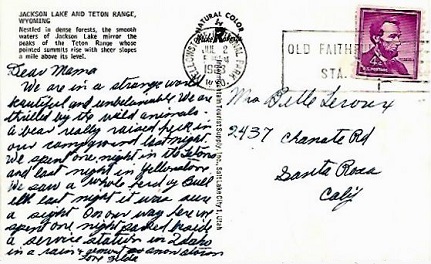 JACKSON LAKE AND TETON RANGE,
WYOMING
Nestled in dense forests, the smooth
waters of Jackson Lake mirror the
peaks of the Teton Range whose
pointed summits rise with sheer slopes
a mile above its level.
Dear Mama
We are in a strange world
beautiful and unbelievable. We are
thrilled by the wild animals.
A bear really raised heck in
our campground last night.
We spent one night in the Tetons
and last night in Yellowstone.
We saw a whole herd of Bull
elk last night it was sure
a sight. On our way here we
spent one night parked beside
a service station in Idaho
in a rain &
love Hilda
NATURAL COLOR
by
JUL 2
WYO.
Tourist Supply, Inc., Salt Lake City 1, Utah
OLD FAITHFUL
STA.
4¢
Mrs Belle Leroux
2437 Chanate Rd
Santa Rosa
Calif